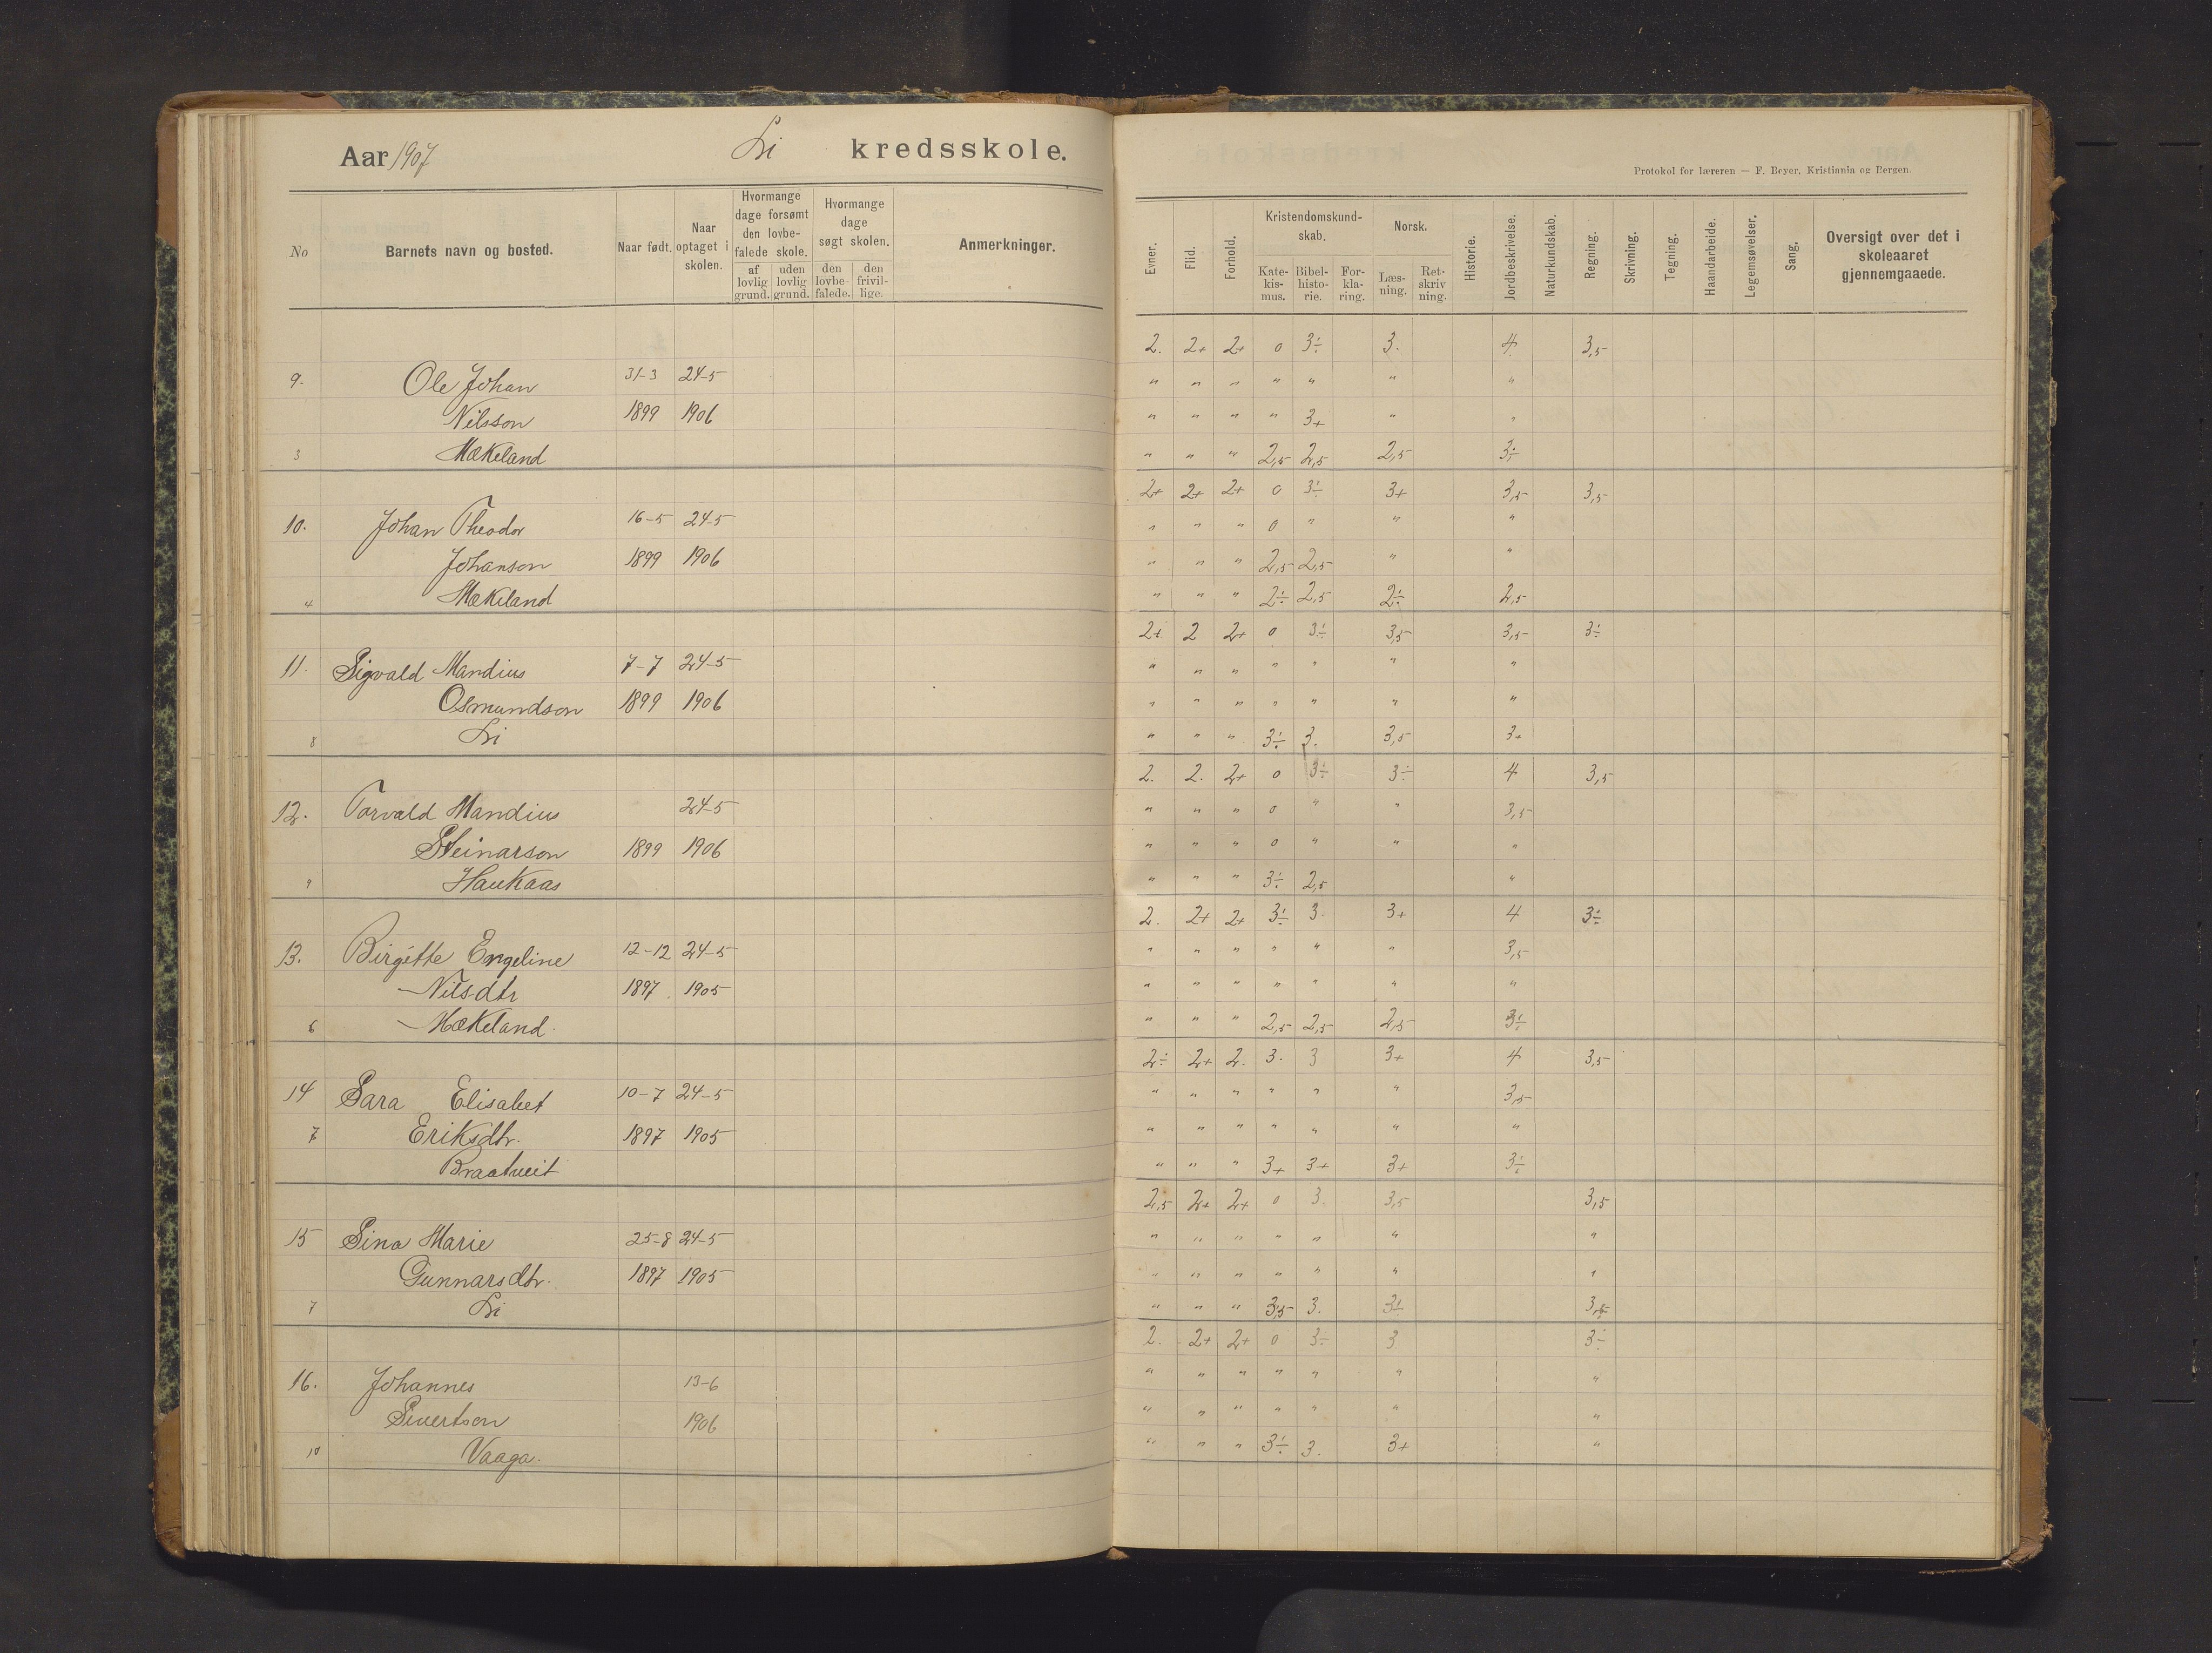 Aar 1907 Li kredsskole.
Protokol for læreren — F. Beyer. Kristiania og Bergen.
No Barnets navn og bosted. Naar født. Naar optaget i skolen. Hvormange dage forsømt den lovbefalede skole. af lovlig grund. uden lovlig grund. Hvormange dage søgt skolen. den lovbefalede. den frivillige. Anmerkninger.
Evner. Flid. Forhold. Kristendomskundskab. Katekismus. Bibelhistorie. Forklaring. Norsk. Læsning. Retskrivning. Historie. Jordbeskrivelse. Naturkundskab. Regning. Skrivning. Tegning. Haandarbeide. Legemsøvelser. Sang. Oversigt over det i skoleaaret gjennemgaaede.
2. 2+ 2+ 0 3÷ 3. 4. 3,5
9. Ole Johan 31-3 24-5 " " " " " " "
Nilsson 1899 1906 " " " " 3+ " "
3 Mækeland " " " 2,5 2,5 2,5 3÷
2+ 2+ 2+ 0 3÷ 3+ 3,5 3,5
10. Johan Theodor 16-5 24-5 " " " 0 " " "
Johanson 1899 1906 " " " 2,5 2,5 " "
4 Mækeland " " " 2÷ 2,5 2÷ 2,5
2+ 2 2+ 0 3÷ 3,5 3,5 3÷
11. Sigvald Mandius 7-7 24-5 " " " " " " "
Osmundson 1899 1906 " " " " " " "
8 Li " " " 3÷ 3. 3,5 3+
2. 2. 2+ 0 3÷ 3÷ 4 3,5
12. Torvald Mandius 24-5 " " " 0 " " 3,5
Steinarson 1899 1906 " " " 0 " " "
9 Haukaas " " " 3÷ 2,5 "
2. 2+ 2+ 3÷ 3. 3+ 4 3÷
13. Birgitte Engeline 12-12 24-5 " " " " " " 3,5
Nilsdtr 1897 1905 " " " " " " "
6 Mækeland. " " " 2,5 2,5 2,5 3÷
2÷ 2+ 2. 3. 3 3+ 4 3,5
14 Sara Elisabet 10-7 24-5 " " " " " " 3,5
7 Eriksdtr. 1897 1905 " " " " " " "
Braatveit " " " 3+ 3+ 3+ 3÷
2,5 2+ 2+ 0 3. 3,5 3,5
15 Sina Marie 25-8 24-5 " " " " " " "
Gunnarsdtr. 1897 1905 " " " " " " "
7 Li " " " 3,5 3. 3÷
2. 2+ 2+ 0 3÷ 3 3÷
16. Johannes 13-6 " " " " " " "
Sivertson 1906 " " " " " " "
10 Vaaga. " " " 3÷ 3. 3+ "